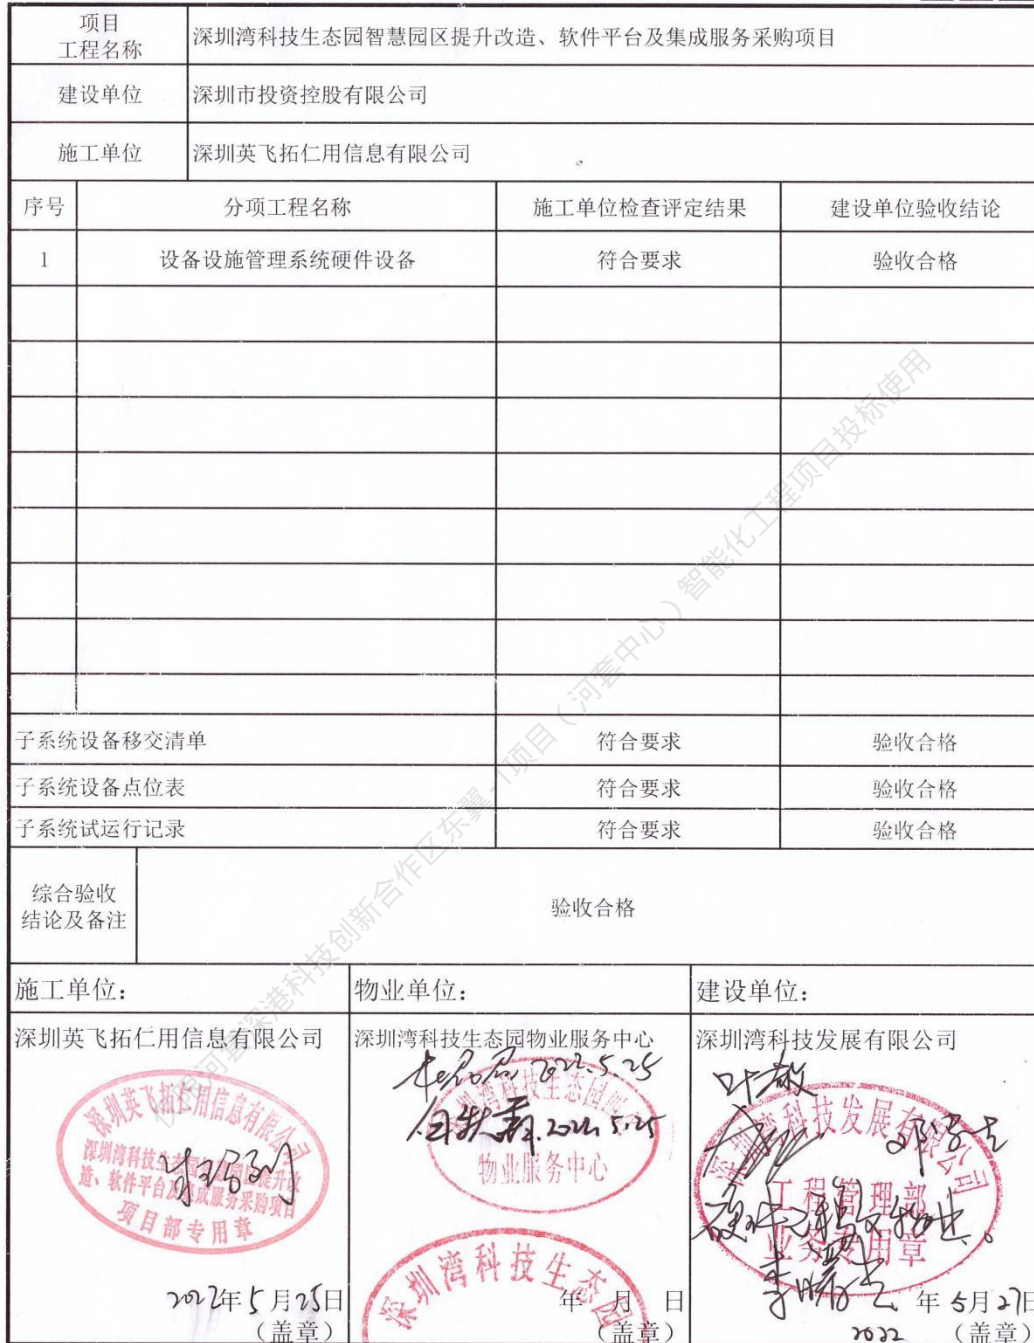 项目
工程名称
深圳湾科技生态园智慧园区提升改造、软件平台及集成服务采购项目
建设单位
深圳市投资控股有限公司
施工单位
深圳英飞拓仁用信息有限公司
序号 分项工程名称 施工单位检查评定结果 建设单位验收结论
1 设备设施管理系统硬件设备 符合要求 验收合格
子系统设备移交清单 符合要求 验收合格
子系统设备点位表 符合要求 验收合格
子系统试运行记录 符合要求 验收合格
综合验收
结论及备注
验收合格
施工单位： 物业单位： 建设单位：
深圳英飞拓仁用信息有限公司 深圳湾科技生态园物业服务中心 深圳湾科技发展有限公司
2022.5.25
2022.5.25
深圳英飞拓仁用信息有限公司
造、软件平台及集成服务采购项目
项目部专用章
物业服务中心
深圳湾科技生态园
深圳湾科技发展有限公司
工程管理部
业务专用章
2022年5月25日
（盖章）
年 月 日
（盖章）
年5月27日
2022 （盖章）
仅限河套深港科技创新合作区东翼-1项目（河套中心）智能化工程项目投标使用